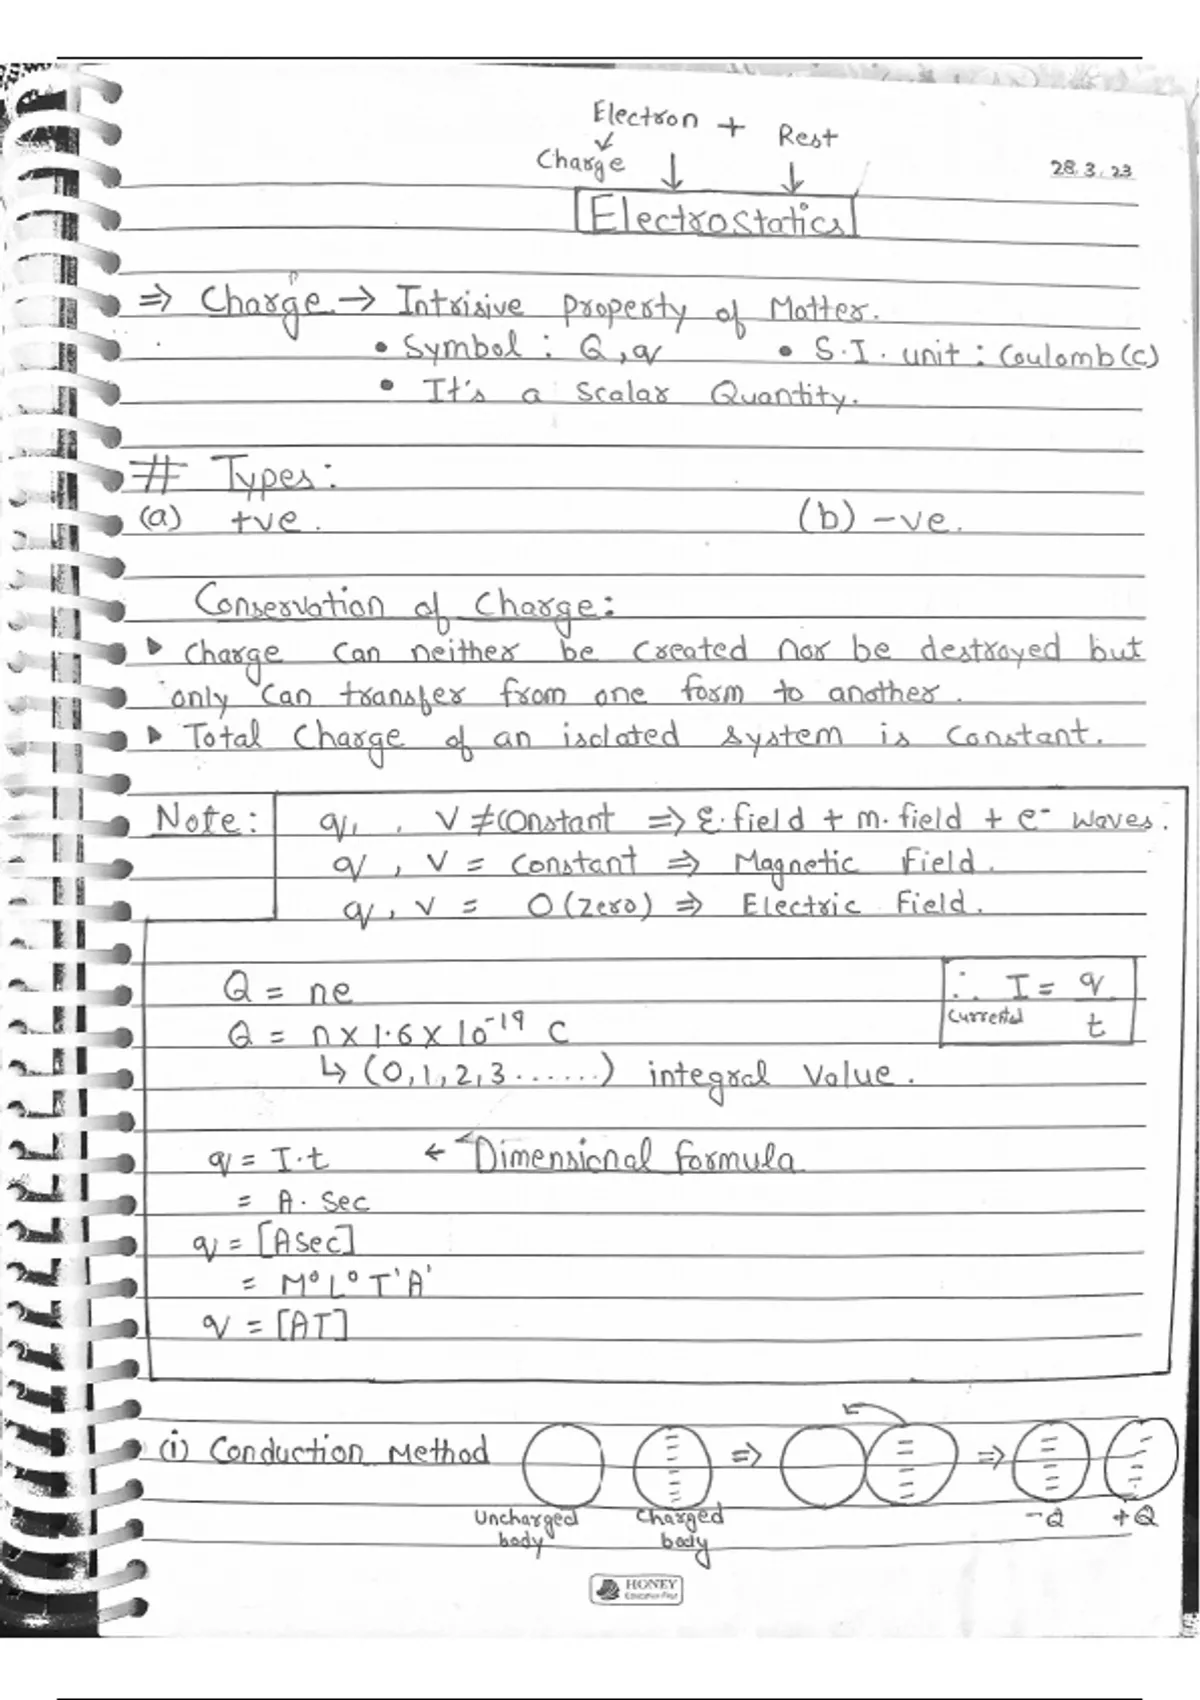 Electron + Rest
Charge
28.3.23
Electrostatics
⇒ Charge → Intrisive property of Matter.
• Symbol : Q, q • S.I. unit : Coulomb (C)
• It's a Scalar Quantity.
# Types:
(a) +ve. (b) -ve.
Conservation of Charge:
▸ Charge Can neither be Created nor be destroyed but
only Can transfer from one form to another.
▸ Total Charge of an isolated system is Constant.
Note: q, , V ≠ Constant ⇒ E. field + m. field + e⁻ waves.
q, V = Constant ⇒ Magnetic Field.
q, v = 0 (Zero) ⇒ Electric Field.
Q = ne
∴ I = q/t
Current
Q = n × 1.6 × 10⁻¹⁹ C
↳ (0,1,2,3.......) integral Value.
q = I.t ← Dimensional formula
= A. Sec
q = [Asec]
= M⁰L⁰T¹A¹
q = [AT]
(i) Conduction Method ⇒ ⇒
Uncharged body
Charged body
-Q +Q
HONEY
Education First